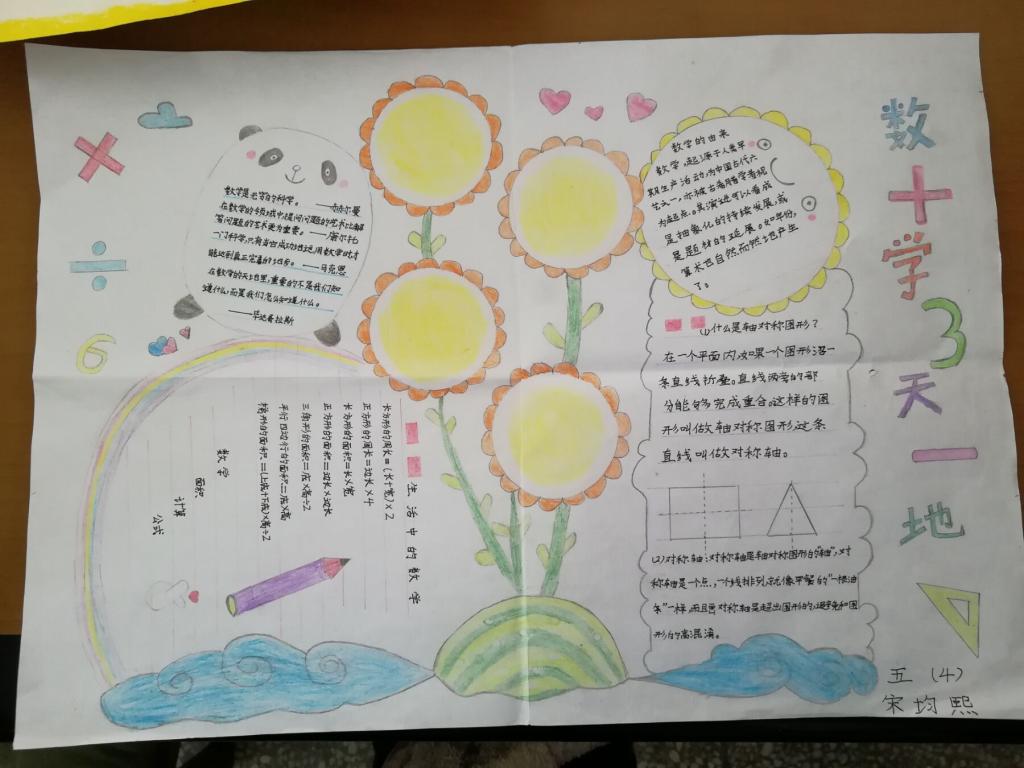 数
十
学
3
天
一
地
6
数学是无穷的科学。 ——赫尔曼
在数学的领域中,提问问题的艺术比解
答问题的艺术更为重要。 ——康尔托
一门科学,只有当它成功地运用数学时,才
能达到真正完善的地步。 ——马克思
在数学的天地里,重要的不是我们知
道什么,而是我们怎么知道什么。
——毕达哥拉斯
数学的由来
数学,起源于人类早
期生产活动,为中国古代六
艺之一,亦被古希腊学者视
为起点。其演进可以看成
是抽象化的持续发展,或
是题材的延展。
算术也自然而然地产生
了。
(1)什么是轴对称图形?
在一个平面内,如果一个图形沿一
条直线折叠。直线两旁的部
分能够完成重合。这样的图
形叫做轴对称图形,这条
直线叫做对称轴。
(2)对称轴:对称轴是轴对称图形的"轴",对
称轴是一个点,一个线排列,就像苹蟹的"一根油
条"一样,而且对称轴是超出图形的,以避免和图
形的高混淆。
生活中的数学
长方形的周长=(长+宽)×2
正方形的周长=边长×4
长方形的面积=长×宽
正方形的面积=边长×边长
三角形的面积=底×高÷2
平行四边行的面积=底×高
梯形的面积=(上底+下底)×高÷2
数学
面积
计算
公式
五(4)
宋均熙